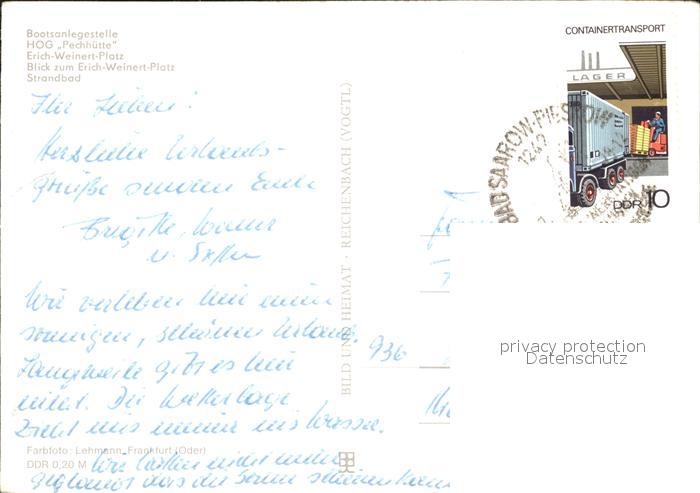 Bootsanlegestelle
HOG „Pechhütte“
Erich-Weinert-Platz
Blick zum Erich-Weinert-Platz
Strandbad
Ihr Lieben!
Herzliche Urlaubs-
grüße senden Euch
Brigitte,
u.
Wir verleben hier einen
sonnigen, schönen Urlaub.
Langweile gibt es hier
nicht. Die Wetterlage
zieht uns immer ins Wasser.
Wir hätten nicht mehr
geglaubt das die Sonne scheinen kann
Farbfoto: Lehmann, Frankfurt (Oder)
DDR 0,20 M
BILD UND HEIMAT · REICHENBACH (VOGTL)
CONTAINERTRANSPORT
LAGER
DDR 10
BAD SAAROW-PIESKOW
1242
936
privacy protection
Datenschutz